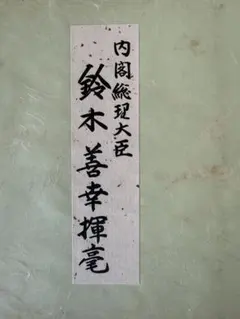 内閣総理大臣
鈴木善幸揮毫